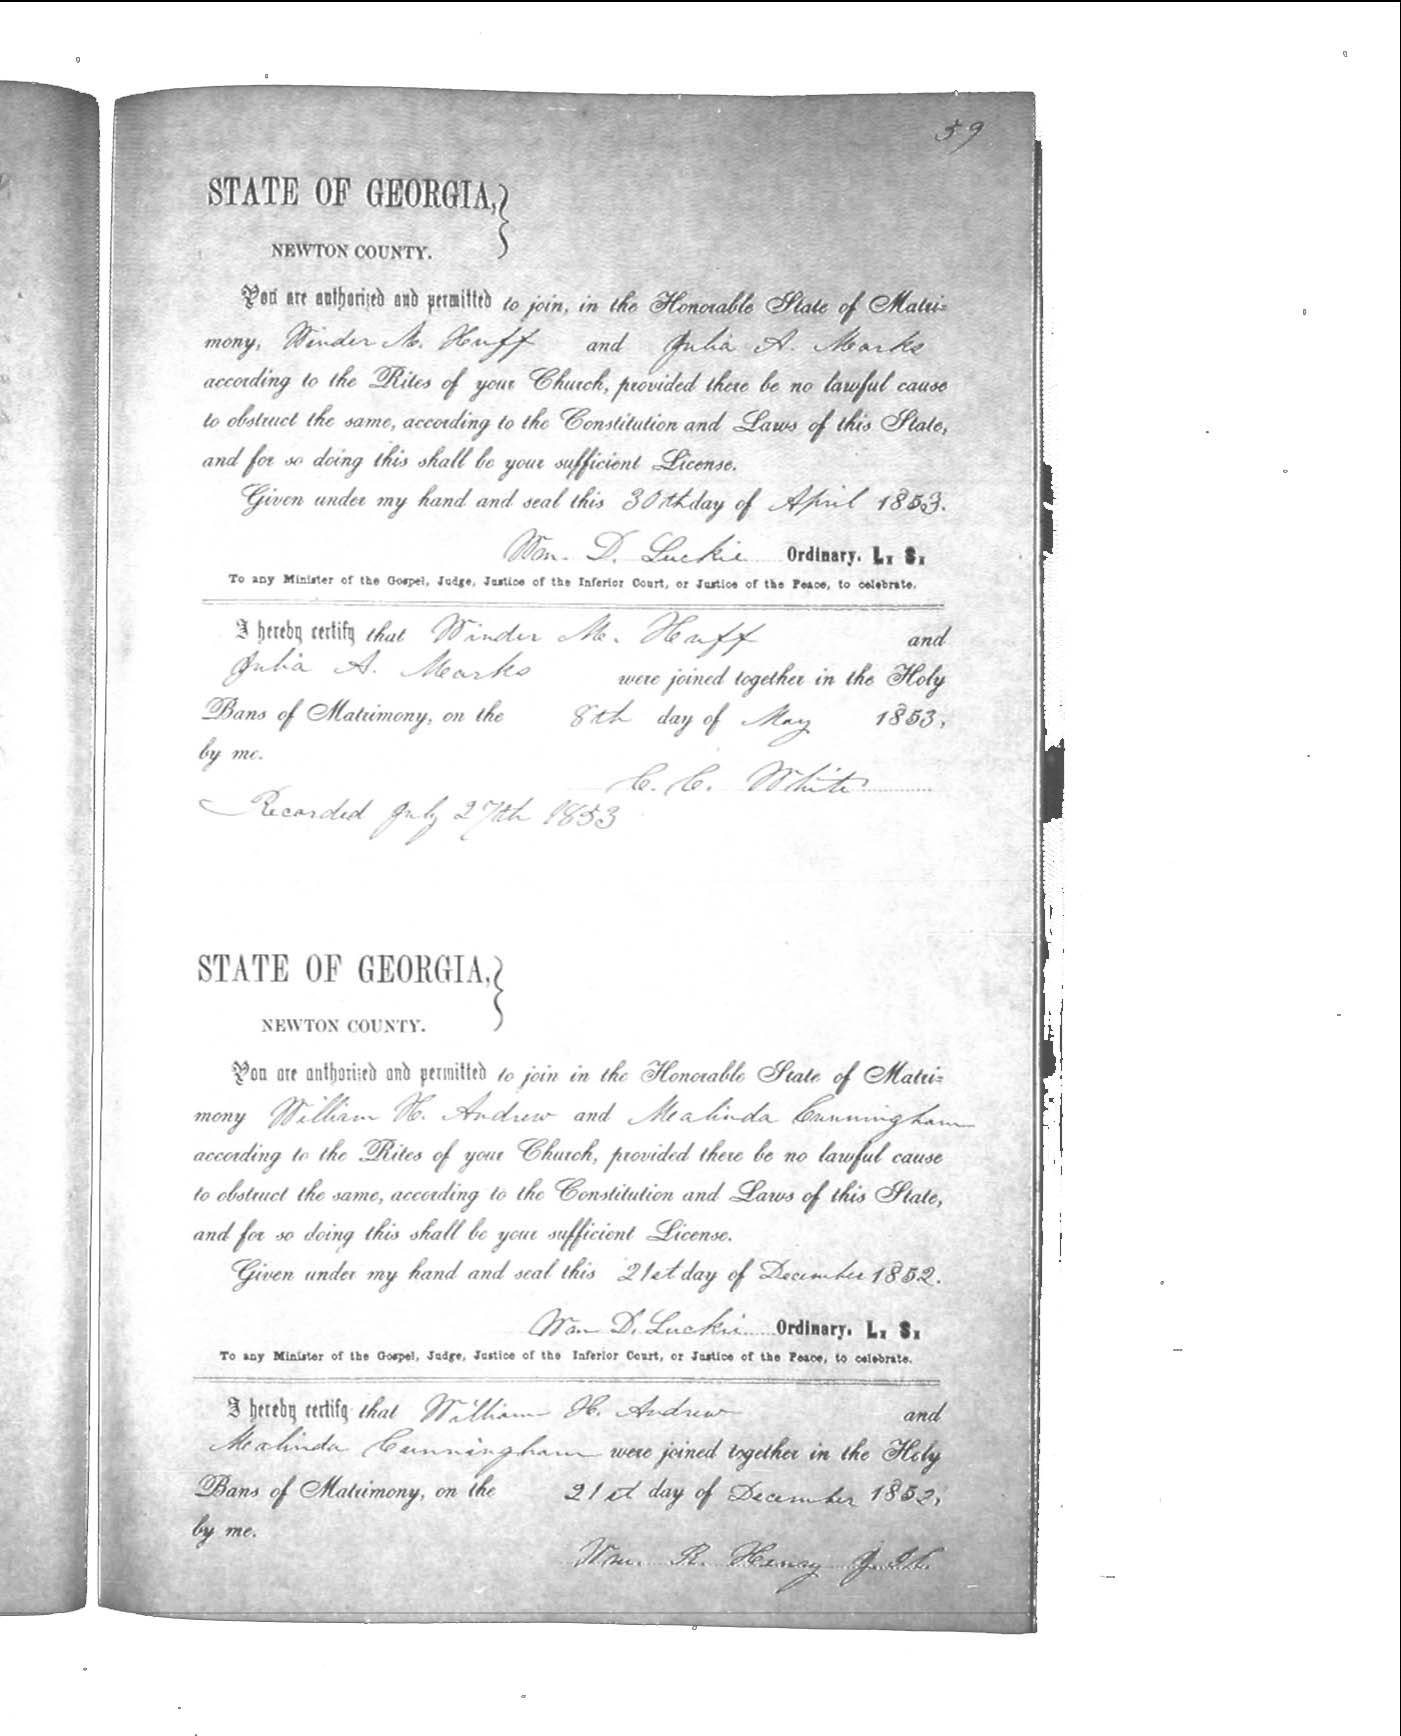 59
STATE OF GEORGIA,
NEWTON COUNTY.
You are authorized and permitted to join, in the Honorable State of Matri-
mony, Winder M. Huff and Julia A. Marks
according to the Rites of your Church, provided there be no lawful cause
to obstruct the same, according to the Constitution and Laws of this State,
and for so doing this shall be your sufficient License.
Given under my hand and seal this 30th day of April 1853.
Wm. D. Luckie Ordinary. L. S.
To any Minister of the Gospel, Judge, Justice of the Inferior Court, or Justice of the Peace, to celebrate.
I hereby certify that Winder M. Huff and
Julia A. Marks were joined together in the Holy
Bans of Matrimony, on the 8th day of May 1853,
by me.
C. C. White
Recorded July 27th 1853
STATE OF GEORGIA,
NEWTON COUNTY.
You are authorized and permitted to join in the Honorable State of Matri-
mony William H. Andrew and Mealinda Cunningham
according to the Rites of your Church, provided there be no lawful cause
to obstruct the same, according to the Constitution and Laws of this State,
and for so doing this shall be your sufficient License.
Given under my hand and seal this 21st day of December 1852.
Wm D. Luckie Ordinary. L. S.
To any Minister of the Gospel, Judge, Justice of the Inferior Court, or Justice of the Peace, to celebrate.
I hereby certify that William H. Andrew and
Mealinda Cunningham were joined together in the Holy
Bans of Matrimony, on the 21st day of December 1852,
by me.
Wm. R. Henry J. I. C.